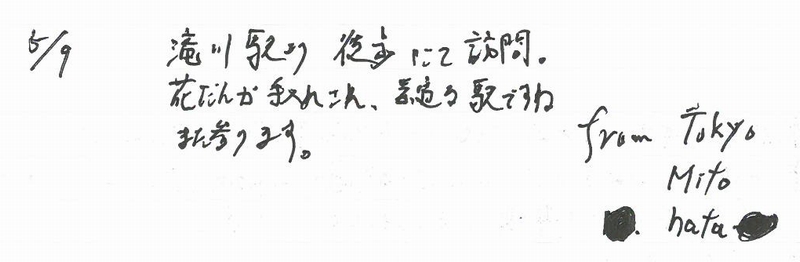 5/9 滝川駅より 徒歩にて訪問。
花だんが手入れされ、 る駅ですね
また参ります。
from Tokyo
Mito
hata